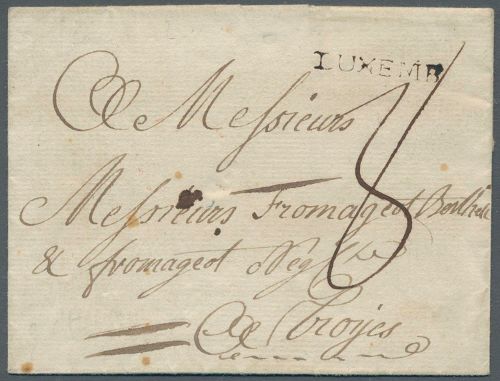 LUXEMB
A Messieurs
8
Messieurs Fromageot
& fromageot Neg
A Troyes